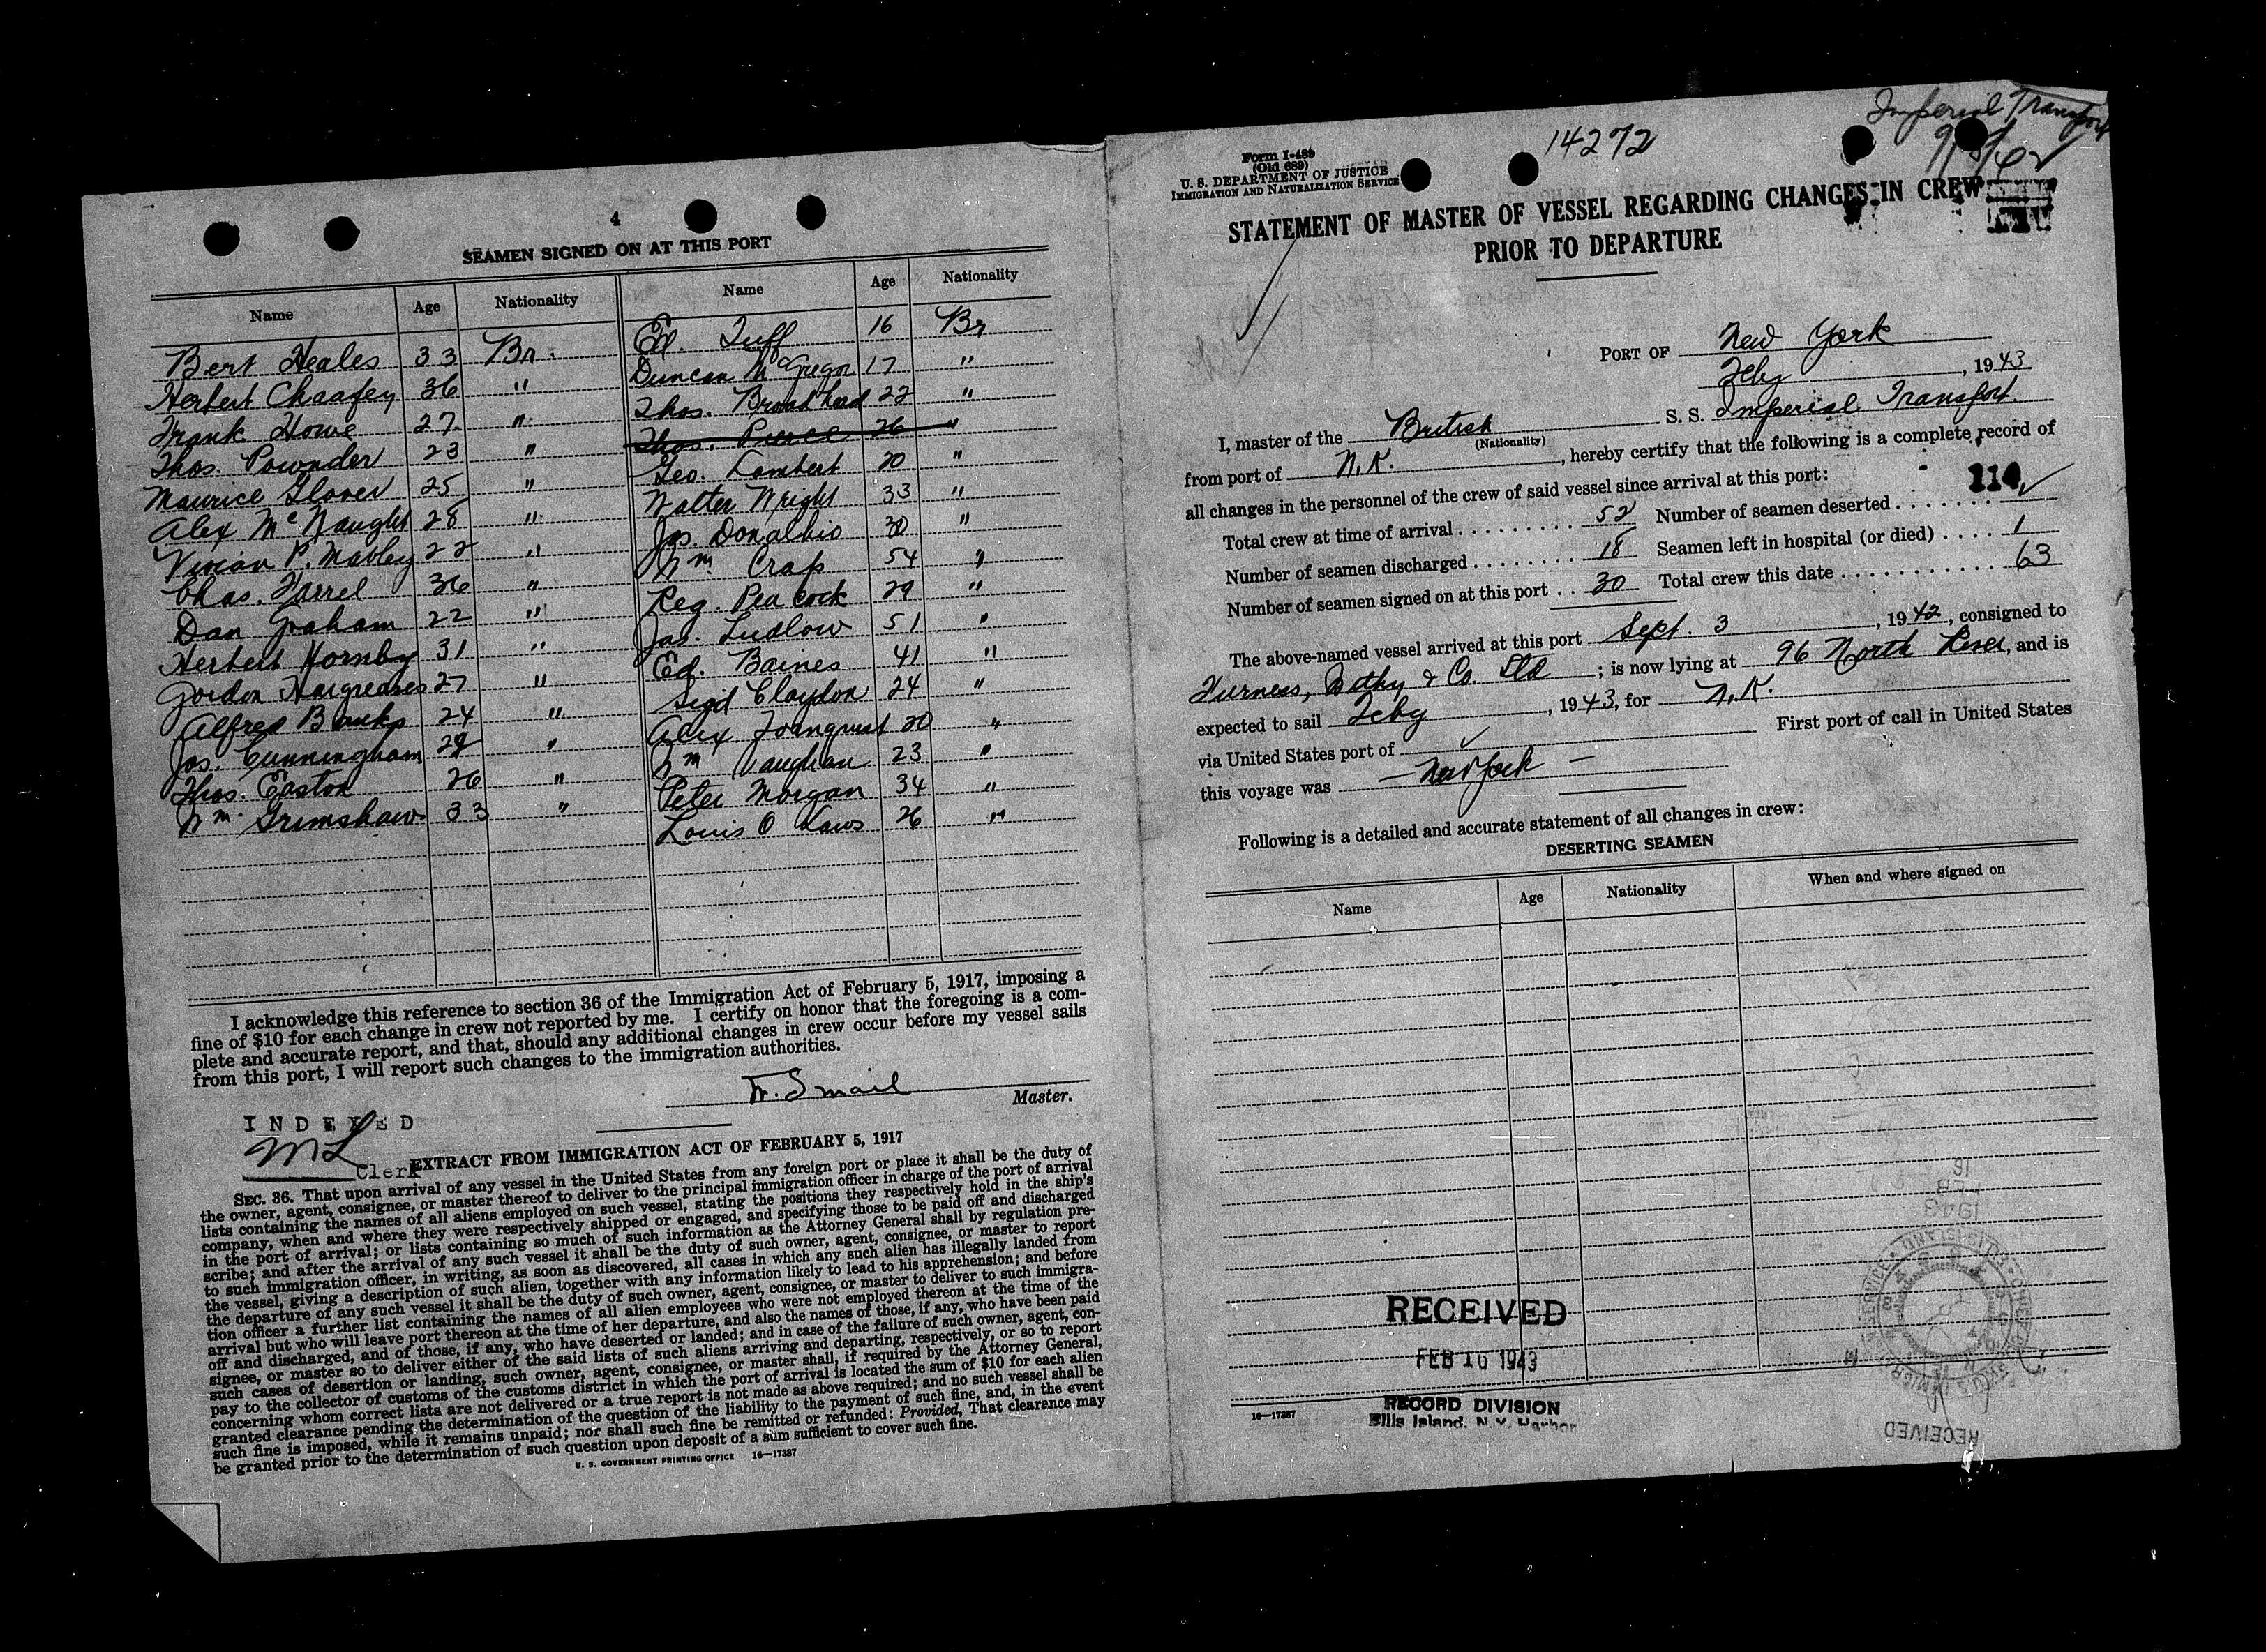 4
SEAMEN SIGNED ON AT THIS PORT
Name Age Nationality Name Age Nationality
Bert Heales 33 Br. Ed. Tuff 16 Br
Herbert Chaafey 36 " Duncan McGregor 17 "
Frank Howe 27 " Thos. Broadhead 22 "
Thos. Pownder 23 " Thos. Pierce 26 "
Maurice Glover 25 " Geo. Lambert 20 "
Alex McNaught 28 " Walter Wright 33 "
Vivian P. Mabley 22 " Jas. Donalhio 30 "
Chas. Farrel 36 " Wm. Crap 54 "
Dan Graham 22 " Reg. Peacock 29 "
Herbert Hornby 31 " Jas. Ludlow 51 "
Gordon Hargreaves 27 " Ed. Baines 41 "
Alfred Banks 24 " Claydon 24 "
Jos. Cunningham 29 " Alex 20 "
Thos. Easton 26 " Wm Vaughan 23 "
Wm. Grimshaw 33 " Peter Morgan 34 "
Louis O Laws 26 "
I acknowledge this reference to section 36 of the Immigration Act of February 5, 1917, imposing a
fine of $10 for each change in crew not reported by me. I certify on honor that the foregoing is a com-
plete and accurate report, and that, should any additional changes in crew occur before my vessel sails
from this port, I will report such changes to the immigration authorities.
W. Smail
Master.
INDEXED
ML Clerk
EXTRACT FROM IMMIGRATION ACT OF FEBRUARY 5, 1917
SEC. 36. That upon arrival of any vessel in the United States from any foreign port or place it shall be the duty of
the owner, agent, consignee, or master thereof to deliver to the principal immigration officer in charge of the port of arrival
lists containing the names of all aliens employed on such vessel, stating the positions they respectively hold in the ship's
company, when and where they were respectively shipped or engaged, and specifying those to be paid off and discharged
in the port of arrival; or lists containing so much of such information as the Attorney General shall by regulation pre-
scribe; and after the arrival of any such vessel it shall be the duty of such owner, agent, consignee, or master to report
to such immigration officer, in writing, as soon as discovered, all cases in which any such alien has illegally landed from
the vessel, giving a description of such alien, together with any information likely to lead to his apprehension; and before
the departure of any such vessel it shall be the duty of such owner, agent, consignee, or master to deliver to such immigra-
tion officer a further list containing the names of all alien employees who were not employed thereon at the time of the
arrival but who will leave port thereon at the time of her departure, and also the names of those, if any, who have been paid
off and discharged, and of those, if any, who have deserted or landed; and in case of the failure of such owner, agent, con-
signee, or master so to deliver either of the said lists of such aliens arriving and departing, respectively, or so to report
such cases of desertion or landing, such owner, agent, consignee, or master shall, if required by the Attorney General,
pay to the collector of customs of the customs district in which the port of arrival is located the sum of $10 for each alien
concerning whom correct lists are not delivered or a true report is not made as above required; and no such vessel shall be
granted clearance pending the determination of the question of the liability to the payment of such fine, and, in the event
such fine is imposed, while it remains unpaid; nor shall such fine be remitted or refunded: Provided, That clearance may
be granted prior to the determination of such question upon deposit of a sum sufficient to cover such fine.
U. S. GOVERNMENT PRINTING OFFICE 16—17387
Imperial Transport
9/3/42
14272
Form I-489
(Old 689)
U. S. DEPARTMENT OF JUSTICE
IMMIGRATION AND NATURALIZATION SERVICE
STATEMENT OF MASTER OF VESSEL REGARDING CHANGES IN CREW
PRIOR TO DEPARTURE
PORT OF New York
Feby, 1943
I, master of the British S. S. Imperial Transport.
(Nationality)
from port of N.K., hereby certify that the following is a complete record of
all changes in the personnel of the crew of said vessel since arrival at this port: 114
Total crew at time of arrival 52 Number of seamen deserted
Number of seamen discharged 18 Seamen left in hospital (or died) 1
Number of seamen signed on at this port 30 Total crew this date 63
The above-named vessel arrived at this port Sept. 3, 1942, consigned to
Furness, Withy & Co. Ltd; is now lying at 96 North River, and is
expected to sail Feby, 1943, for N.K.
via United States port of First port of call in United States
this voyage was — New York —
Following is a detailed and accurate statement of all changes in crew:
DESERTING SEAMEN
Name Age Nationality When and where signed on
RECEIVED
FEB 16 1943
RECORD DIVISION
Ellis Island, N.Y. Harbor
16—17387
RECEIVED